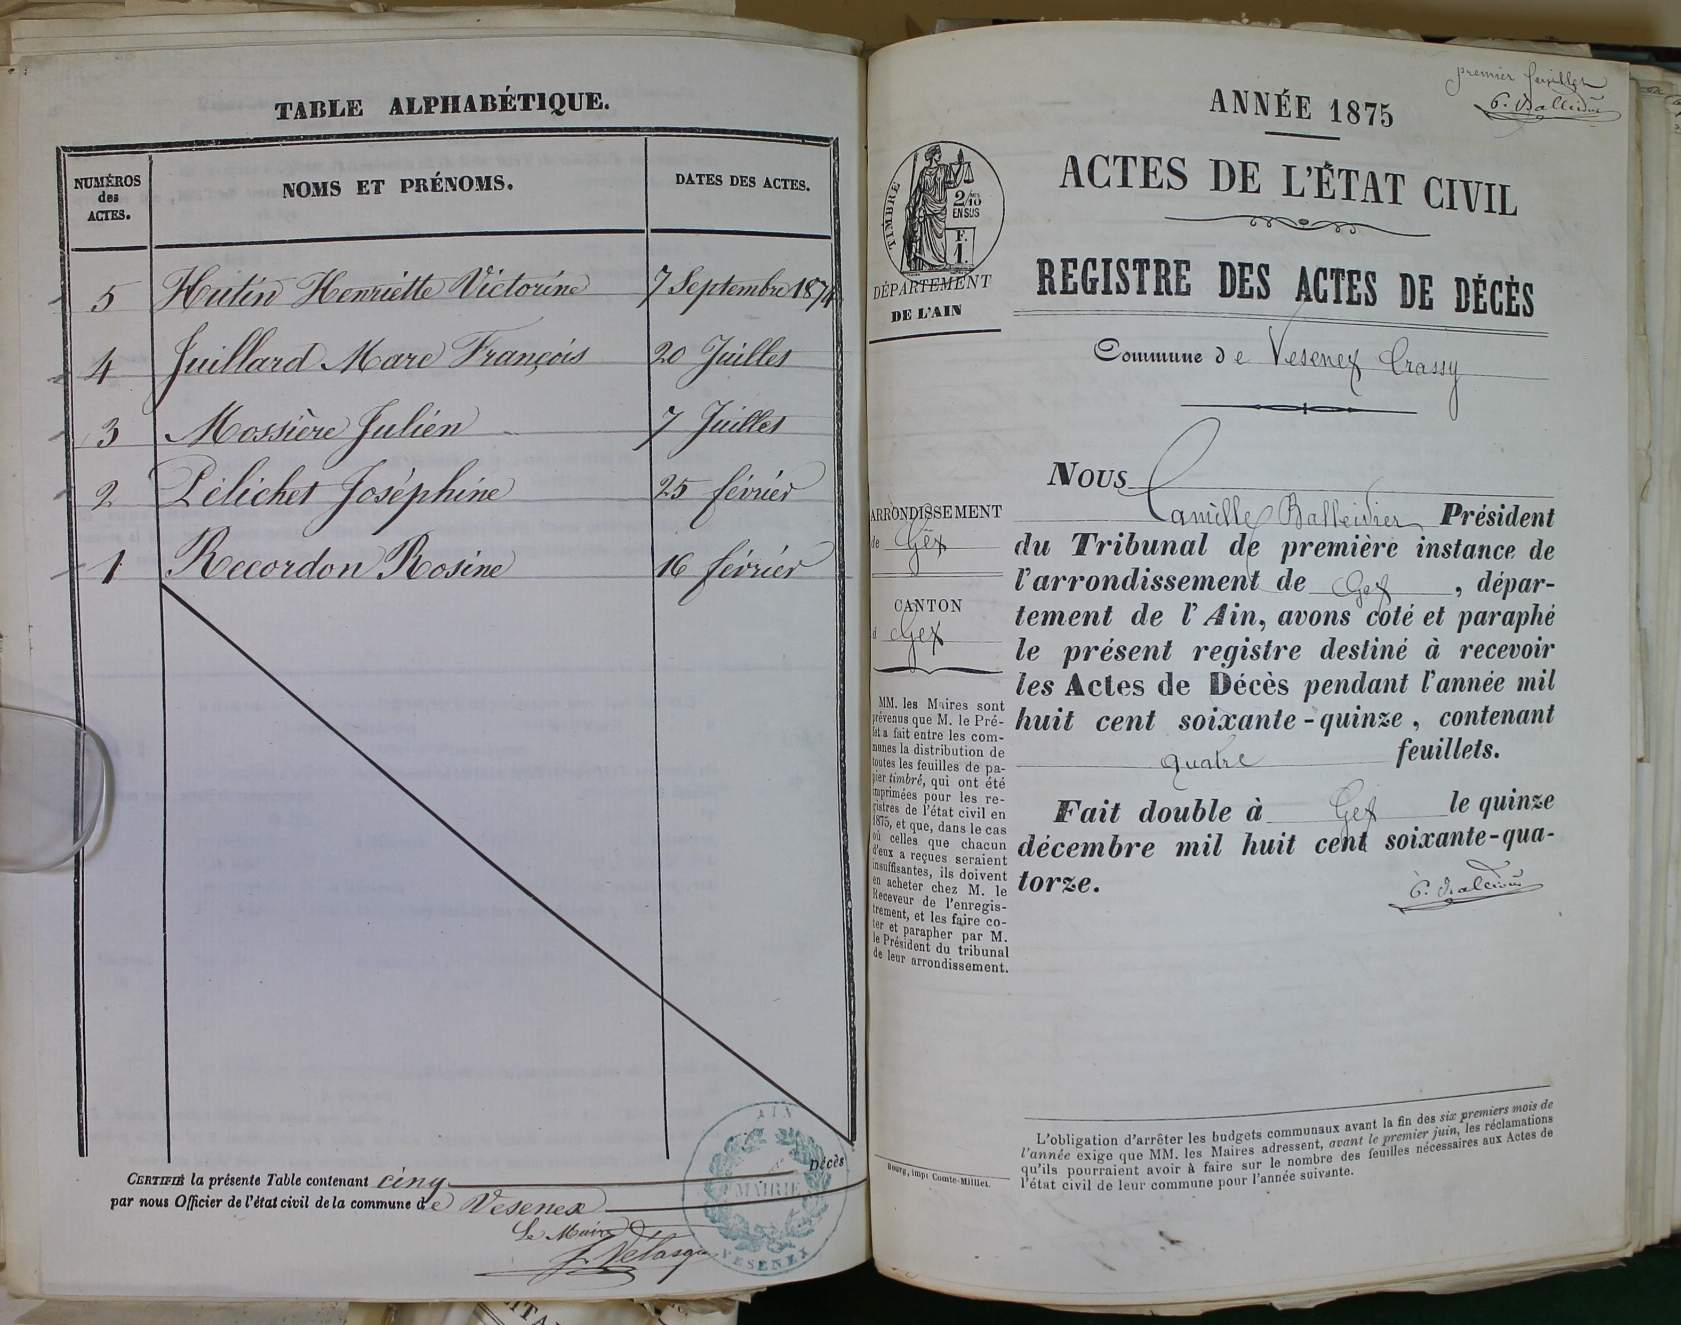 TABLE ALPHABÉTIQUE.
NUMÉROS des ACTES.
NOMS ET PRÉNOMS.
DATES DES ACTES.
5 Hutin Henriette Victorine 7 Septembre 1874
4 Juillard Marc François 20 Juillet
3 Mossière Julien 7 Juillet
2 Pélichet Joséphine 25 février
1 Recordon Rosine 16 février
Décès
CERTIFIÉ la présente Table contenant cinq
par nous Officier de l'état civil de la commune de Vesenex
Le Maire
AIN
MAIRIE
VESENEX
premier feuillet
ANNÉE 1875
ACTES DE L'ÉTAT CIVIL
REGISTRE DES ACTES DE DÉCÈS
TIMBRE
2/10
EN SUS
F.
1.
DÉPARTEMENT
DE L'AIN
Commune de Vesenex Crassy
ARRONDISSEMENT
de Gex
CANTON
d Gex
MM. les Maires sont
prévenus que M. le Pré-
fet a fait entre les com-
munes la distribution de
toutes les feuilles de pa-
pier timbré, qui ont été
imprimées pour les re-
gistres de l'état civil en
1875, et que, dans le cas
où celles que chacun
d'eux a reçues seraient
insuffisantes, ils doivent
en acheter chez M. le
Receveur de l'enregis-
trement, et les faire co-
ter et parapher par M.
le Président du tribunal
de leur arrondissement.
NOUS
Camille Balleidier Président
du Tribunal de première instance de
l'arrondissement de Gex, dépar-
tement de l'Ain, avons coté et paraphé
le présent registre destiné à recevoir
les Actes de Décès pendant l'année mil
huit cent soixante-quinze, contenant
quatre feuillets.
Fait double à Gex le quinze
décembre mil huit cent soixante-qua-
torze.
L'obligation d'arrêter les budgets communaux avant la fin des six premiers mois de
l'année exige que MM. les Maires adressent, avant le premier juin, les réclamations
qu'ils pourraient avoir à faire sur le nombre des feuilles nécessaires aux Actes de
l'état civil de leur commune pour l'année suivante.
Bourg, impr Comte-Milliet.